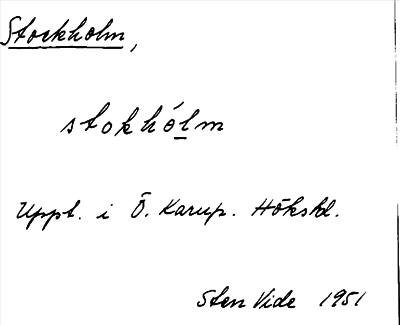 Stockholm,
stokhó̱lm
Uppt. i Ö. Karup. Hökshd.
Sten Vide 1951